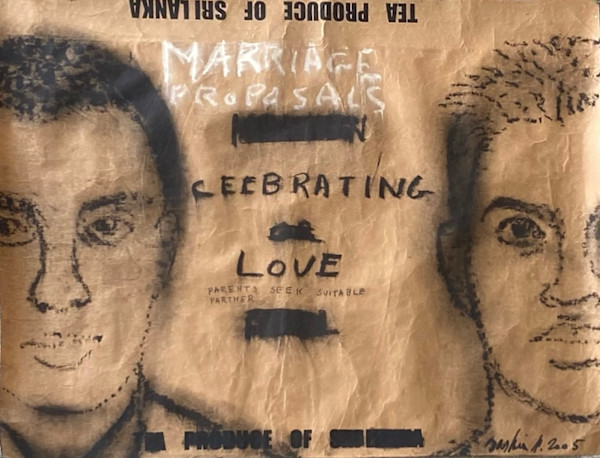 TEA PRODUCE OF SRI LANKA
MARRIAGE
PROPOSALS
CEEBRATING
LOVE
PARENTS SEEK SUITABLE
PARTNER
PRODUCE OF
2005